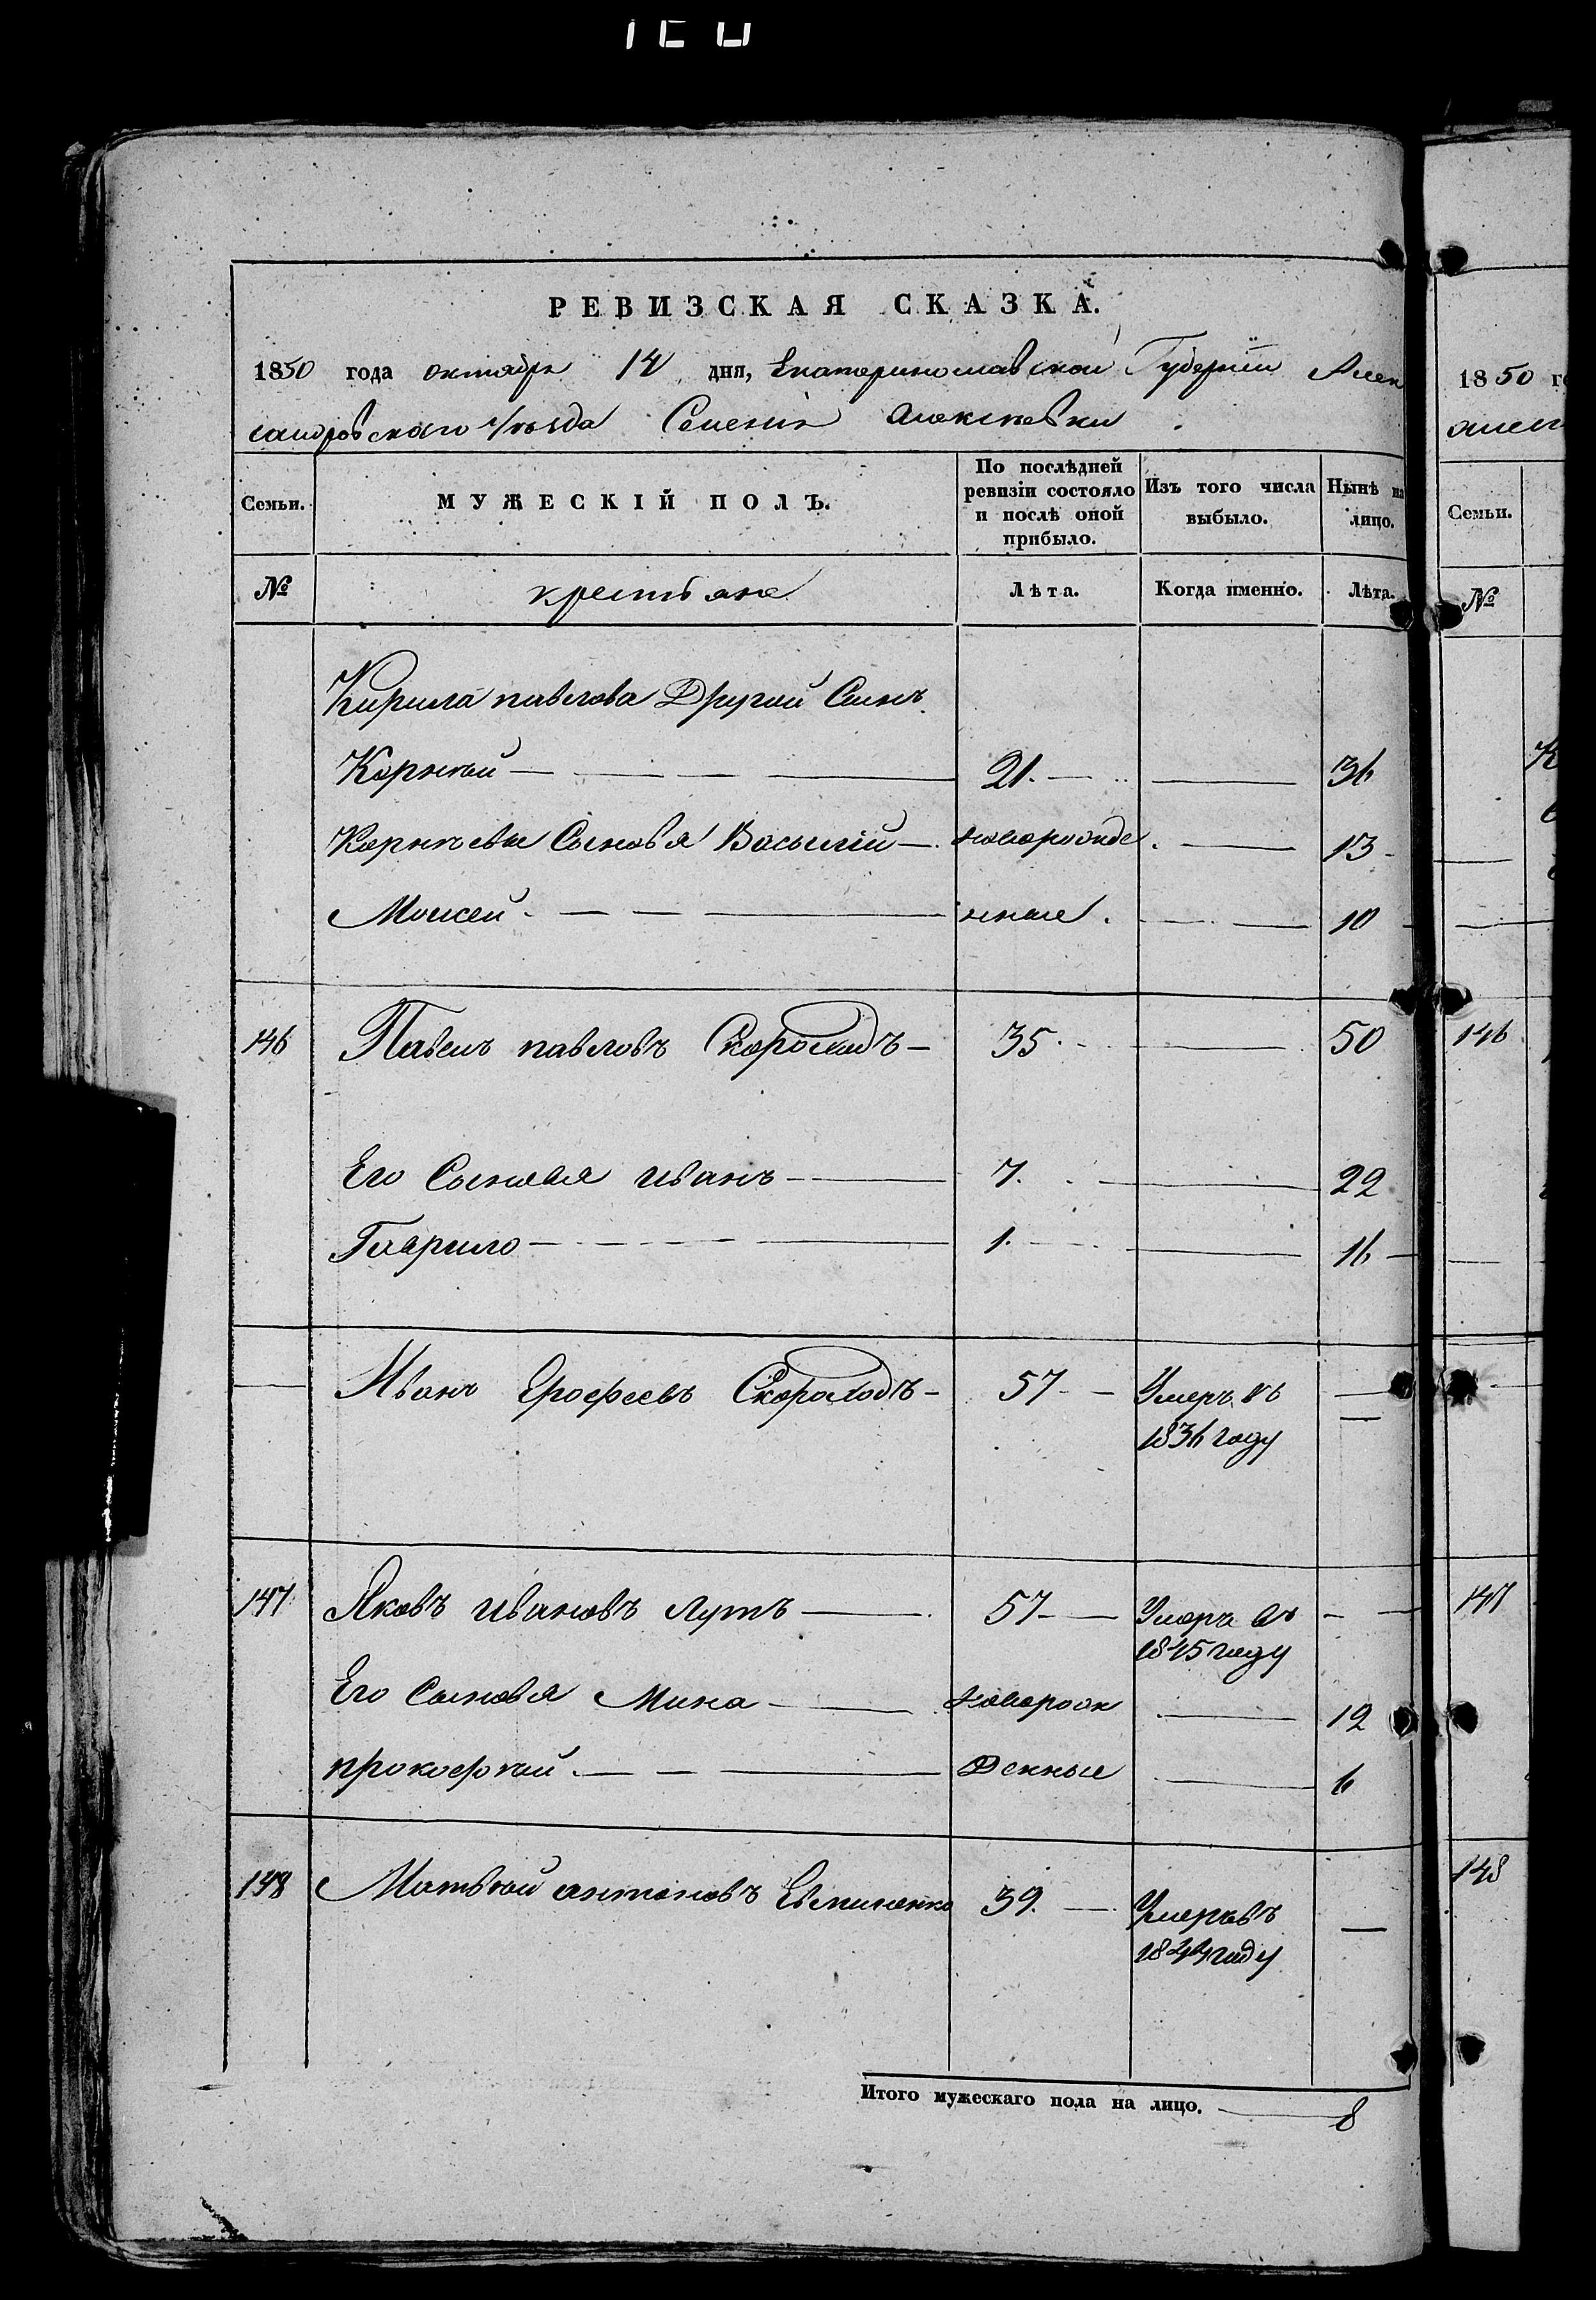 РЕВИЗСКАЯ СКАЗКА.
1850 года октября 14 дня, Екатеринославской Губернии Алек
сандровского уѣзда Селенія Алексѣевки
Семьи. МУЖЕСКІЙ ПОЛЪ. По послѣдней ревизіи состояло и послѣ оной прибыло. Изъ того числа выбыло. Нынѣ на лицо.
№ крестьяне Лѣта. Когда именно. Лѣта.
Кирила павлова Другой Сынъ
Корнѣй 21. 36
Корнѣевы Сыновья Василій новорожде 13
Моисей нные 10
146 Павелъ павловъ Скороходъ 35. 50
Его Сыновья иванъ 7. 22
Гаврило 1. 16
Иванъ Ерофеевъ Скороходъ 57 Умеръ въ
1836 году
147 Яковъ ивановъ Лутъ 57 Умеръ въ
1845 году
Его Сыновья Мина новорож 12
прокофѣй денные 6
148 Матвѣй антоновъ 39. Умеръ въ
1844 году
Итого мужескаго пола на лицо. 8
1850 го
Семьи.
№
146
147
148